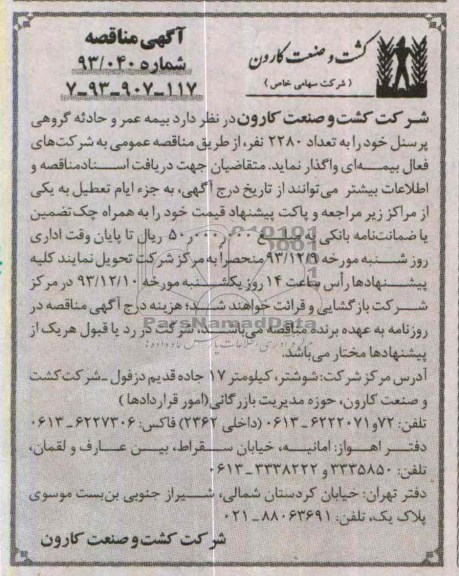 آگهی مناقصه
شماره ۹۳/۰۴۰
۷-۹۳-۹۰۷-۱۱۷
کشت و صنعت کارون
(شرکت سهامی خاص)
شرکت کشت و صنعت کارون در نظر دارد بیمه عمر و حادثه گروهی
پرسنل خود را به تعداد ۲۲۸۰ نفر، از طریق مناقصه عمومی به شرکت‌های
فعال بیمه‌ای واگذار نماید. متقاضیان جهت دریافت اسناد مناقصه و
اطلاعات بیشتر می‌توانند از تاریخ درج آگهی، به جزء ایام تعطیل به یکی
از مراکز زیر مراجعه و پاکت پیشنهاد قیمت خود را به همراه چک تضمین
یا ضمانت‌نامه بانکی ۵۰ ریال تا پایان وقت اداری
روز شنبه مورخه ۹۳/۱۲/۹ منحصراً به مرکز شرکت تحویل نمایند کلیه
پیشنهادها رأس ساعت ۱۴ روز یکشنبه مورخه ۹۳/۱۲/۱۰ در مرکز
شرکت بازگشایی و قرائت خواهند شد؛ هزینه درج آگهی مناقصه در
روزنامه به عهده برنده مناقصه می‌باشد، شرکت در رد یا قبول هریک از
پیشنهادها مختار می‌باشد.
ParsNamadData
آدرس مرکز شرکت: شوشتر، کیلومتر ۱۷ جاده قدیم دزفول - شرکت کشت
و صنعت کارون، حوزه مدیریت بازرگانی (امور قراردادها)
تلفن: ۷۲ و ۶۲۲۲۰۷۱-۰۶۱۳ (داخلی ۲۳۶۲) فاکس: ۶۲۲۷۳۰۶-۰۶۱۳
دفتر اهواز: امانیه، خیابان سقراط، بین عارف و لقمان،
تلفن: ۳۳۳۵۸۵۰ و ۳۳۳۸۲۲۲-۰۶۱۳
دفتر تهران: خیابان کردستان شمالی، شیراز جنوبی بن‌بست موسوی
پلاک یک، تلفن: ۸۸۰۶۳۶۹۱-۰۲۱
شرکت کشت و صنعت کارون